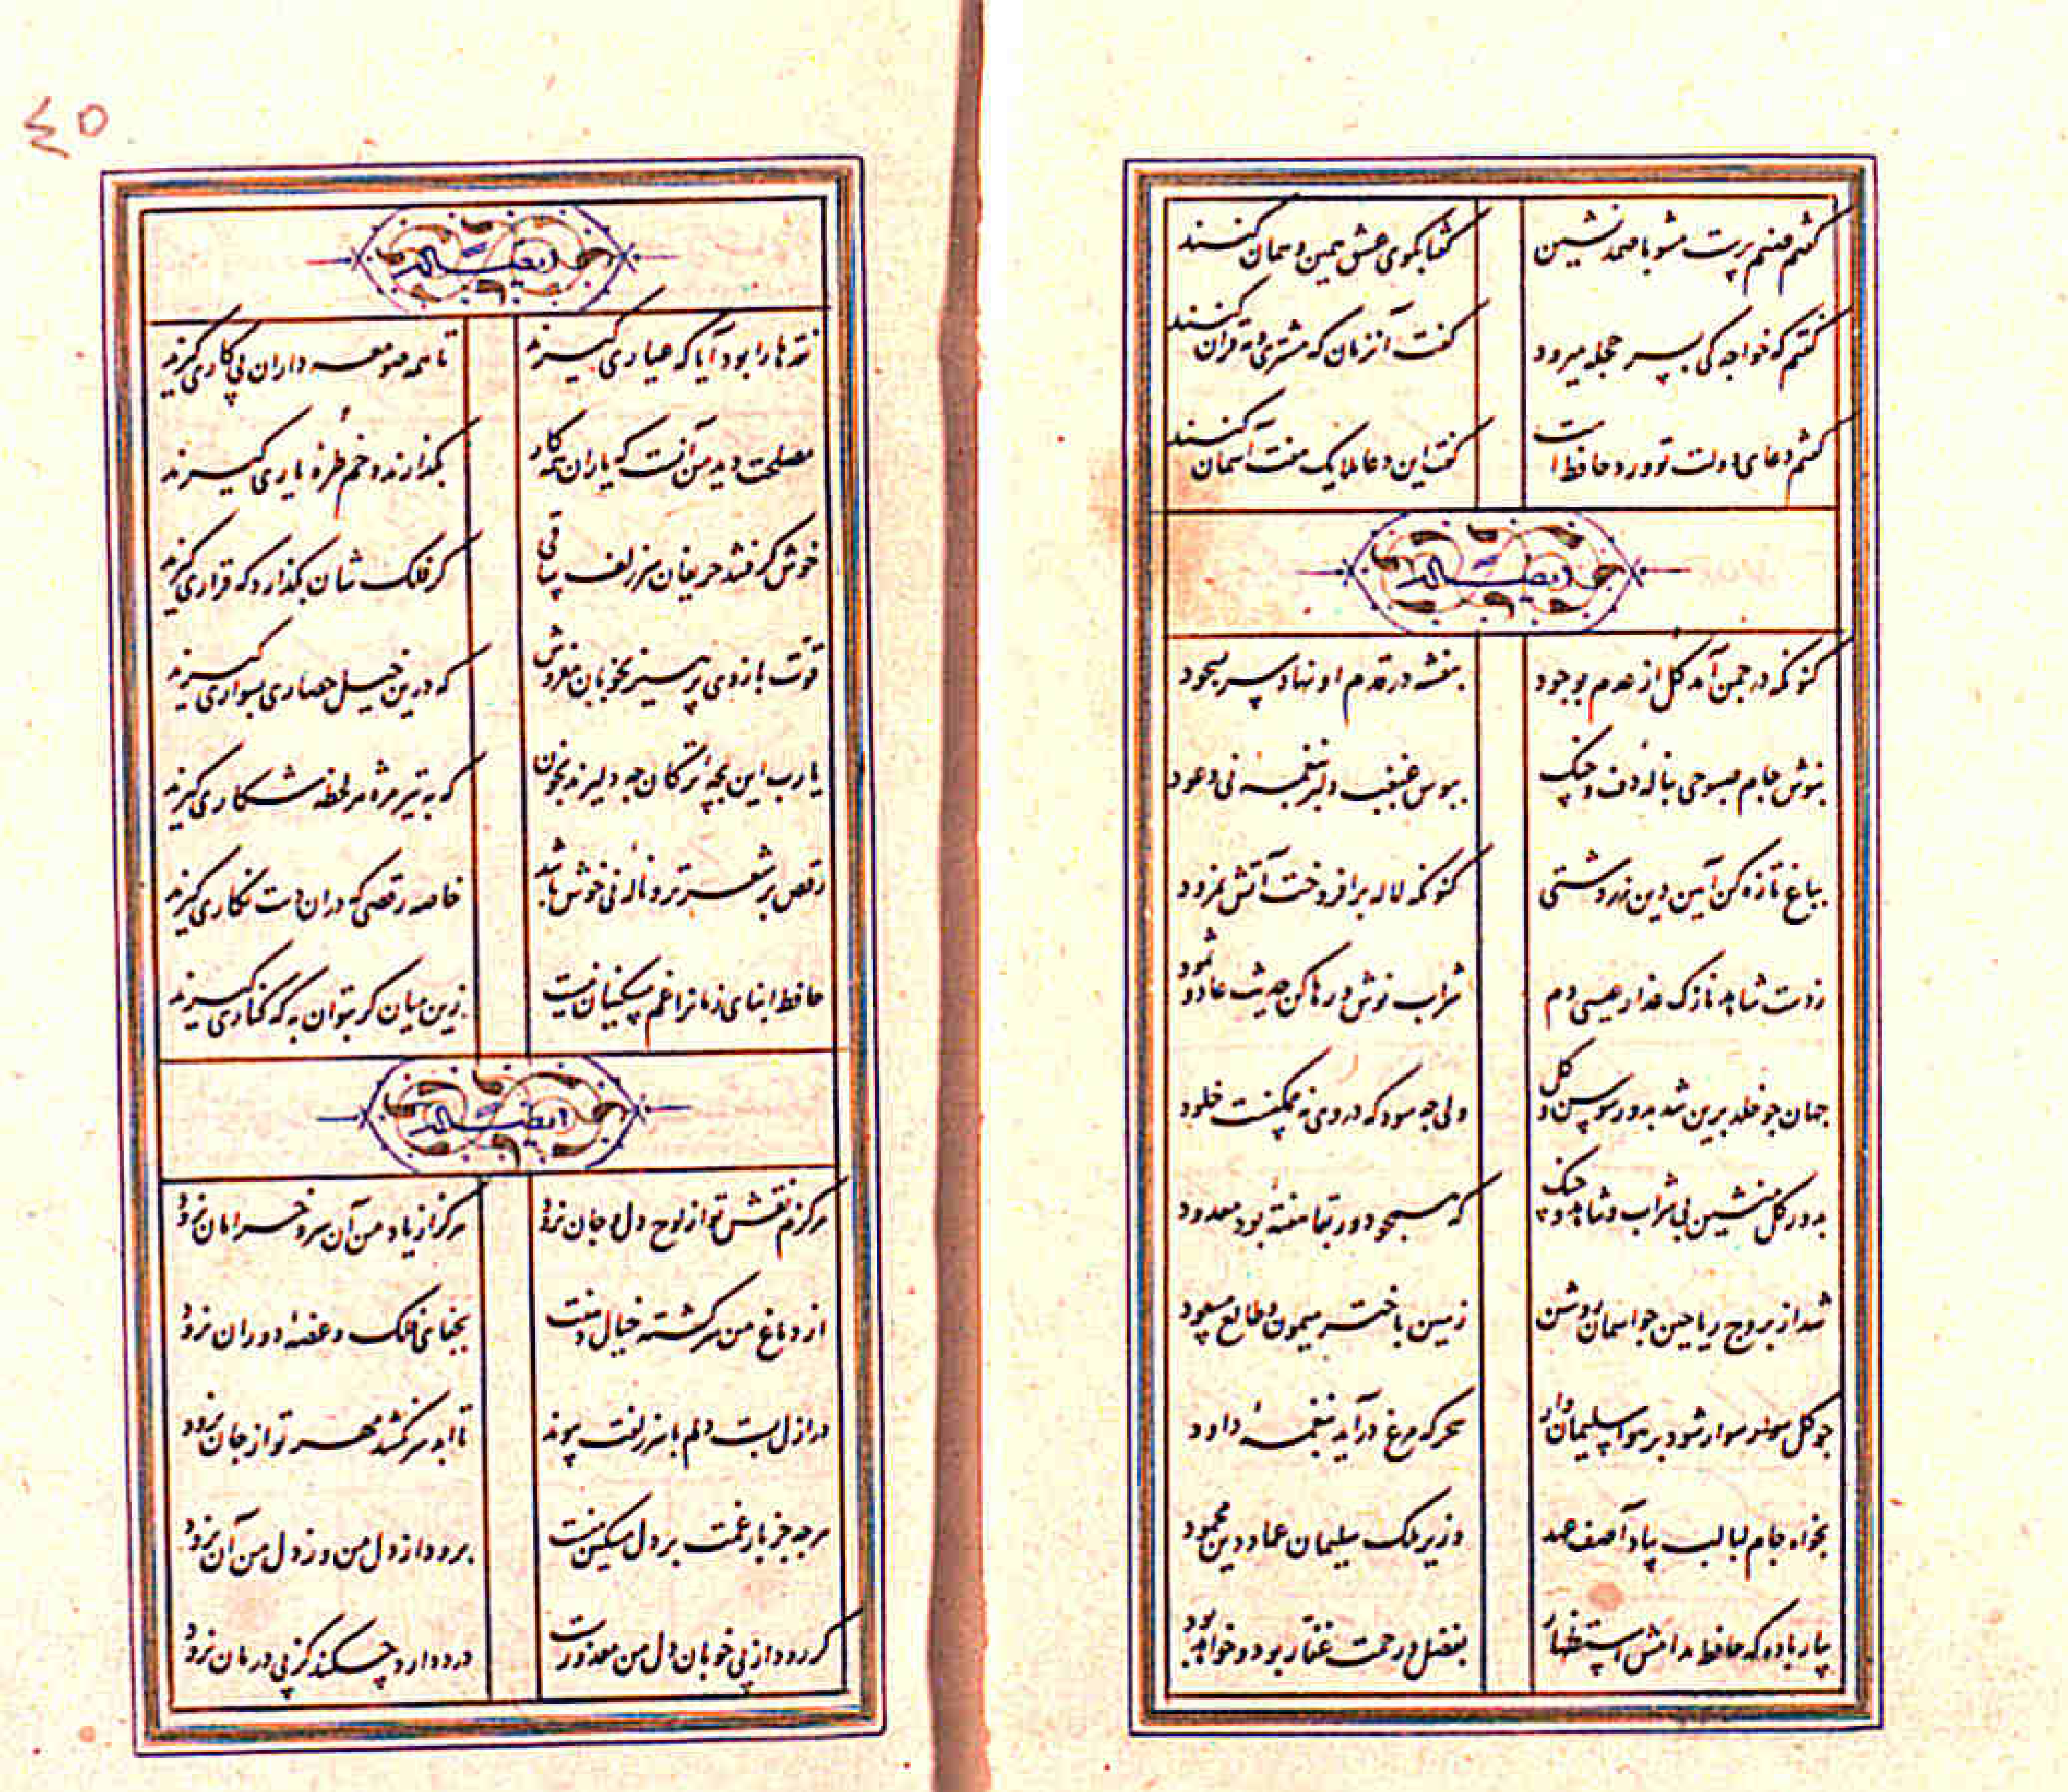 گفتم صنم پرست مشو با صمد نشین گفتا بکوی عشق همین و همان کنند
گفتم که خواجه کی بسر حجله میرود گفت آنزمان که مشتری و مه قران کنند
گفتم دعای دولت تو ورد حافظ است گفت این دعا ملایک هفت آسمان کنند
ایضا له
کنونکه در چمن آمد گل از عدم بوجود بنفشه در قدم او نهاد سر بسجود
بنوش جام صبوحی بنالهٔ دف و چنک ببوس غبغب دلبر بنغمهٔ نی و عود
بباغ تازه کن آیین دین زردشتی کنونکه لاله برافروخت آتش نمرود
زدست شاهد نازک عذار عیسی دم شراب نوش و رها کن حدیث عاد و ثمود
جهان چو خلد برین شد بدور سوسن و گل ولی چه سود که در وی نه ممکنست خلود
بدور گل منشین بی شراب و شاهد و چنک که همچو دور بقا هفتهٔ بود معدود
شد از بروج ریاحین چو اسمان روشن زمین باختر میمون و طالع مسعود
چو گل سوار شود بر هوا سلیمان وار سحر که مرغ درآید بنغمهٔ داود
بخواه جام لبالب بیاد آصف عهد وزیر ملک سلیمان عماد دین محمود
بیار باده که حافظ مدامش استظهار بفضل و رحمت غفار بود و خواهد بود
٤٥
ایضا له
نقدها را بود آیا که عیاری گیرند تا همه صومعه داران پی کاری گیرند
مصلحت دید من آنست که یاران همه کار بگذارند و خم طرهٔ یاری گیرند
خوش گرفتند حریفان سر زلف ساقی گر فلک شان بگذارد که قراری گیرند
قوت بازوی پرهیز بخوبان مفروش که درین خیل حصاری بسواری گیرند
یارب این بچهٔ ترکان چه دلیرند بخون که به تیر مژه هر لحظه شکاری گیرند
رقص بر شعر تر و نالهٔ نی خوش باشد خاصه رقصی که در ان دست نگاری گیرند
حافظ ابنای زمانرا غم مسکینان نیست زین میان گر بتوان به که کناری گیرند
ایضا له
هرگزم نقش تو از لوح دل و جان نرود هرگز از یاد من آن سرو خرامان نرود
از دماغ من سرگشته خیال دهنت بجفای فلک و غصهٔ دوران نرود
در ازل بست دلم با سر زلفت پیوند تا ابد سر نکشد مهر تو از جان نرود
هر چه جز بار غمت بر دل مسکین منست برود از دل من وز دل من آن نرود
گر رود از پی خوبان دل من معذورست درد دارد چکند گز پی درمان نرود